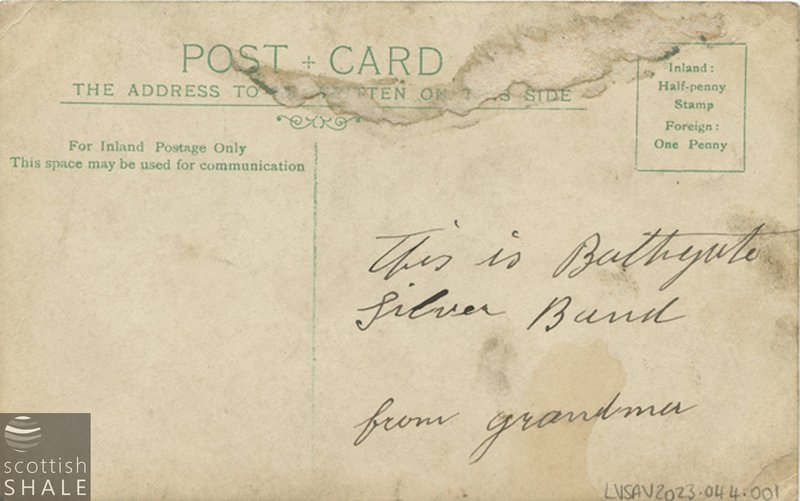 POST + CARD
THE ADDRESS TO TTEN ON THIS SIDE
Inland:
Half-penny
Stamp
Foreign:
One Penny
For Inland Postage Only
This space may be used for communication
This is Bathgate
Silver Band
from grandma
LVSAV2023.044.001
scottish
SHALE